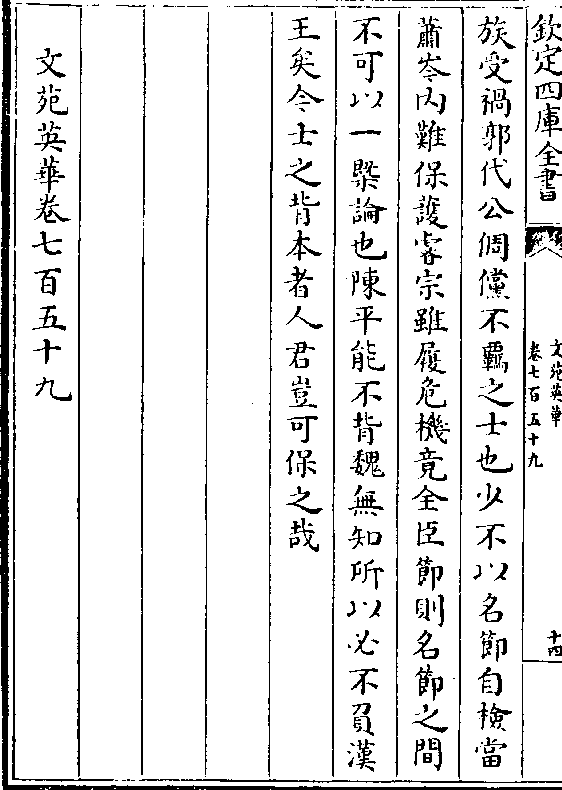 欽定四庫全書
文苑英華
卷七百五十九
十四
族受禍郭代公倜儻不覊之士也少不以名節自檢當
蕭岑内難保護睿宗雖履危機竟全臣節則名節之間
不可以一槩論也陳平能不背魏無知所以必不負漢
王矣今士之背本者人君豈可保之哉
文苑英華卷七百五十九